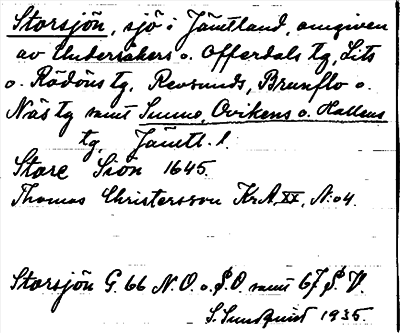 Storsjön, sjö i Jämtland, omgiven
av Undersåkers o. Offerdals tg, Lits
o. Rödöns tg, Revsunds, Brunflo o.
Näs tg samt Sunne, Ovikens o. Hallens
tg, Jämtl. l.
Store Siön 1645.
Thomas Christersson KrA, XX, N:o4.
Storsjön G. 66 N.O. o. S.O. samt 67 S.V.
S. Sundquist 1935.